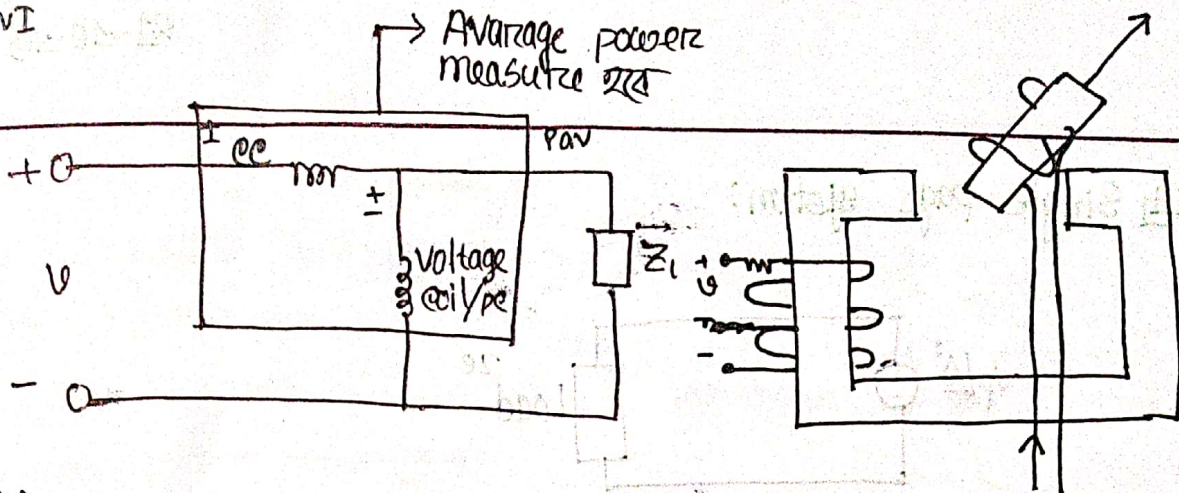 VI
→ Avarage power
measure হবে
I
CC
Pav
+
±
V
voltage
coil/pc
Z₁
+
V
-
-
load